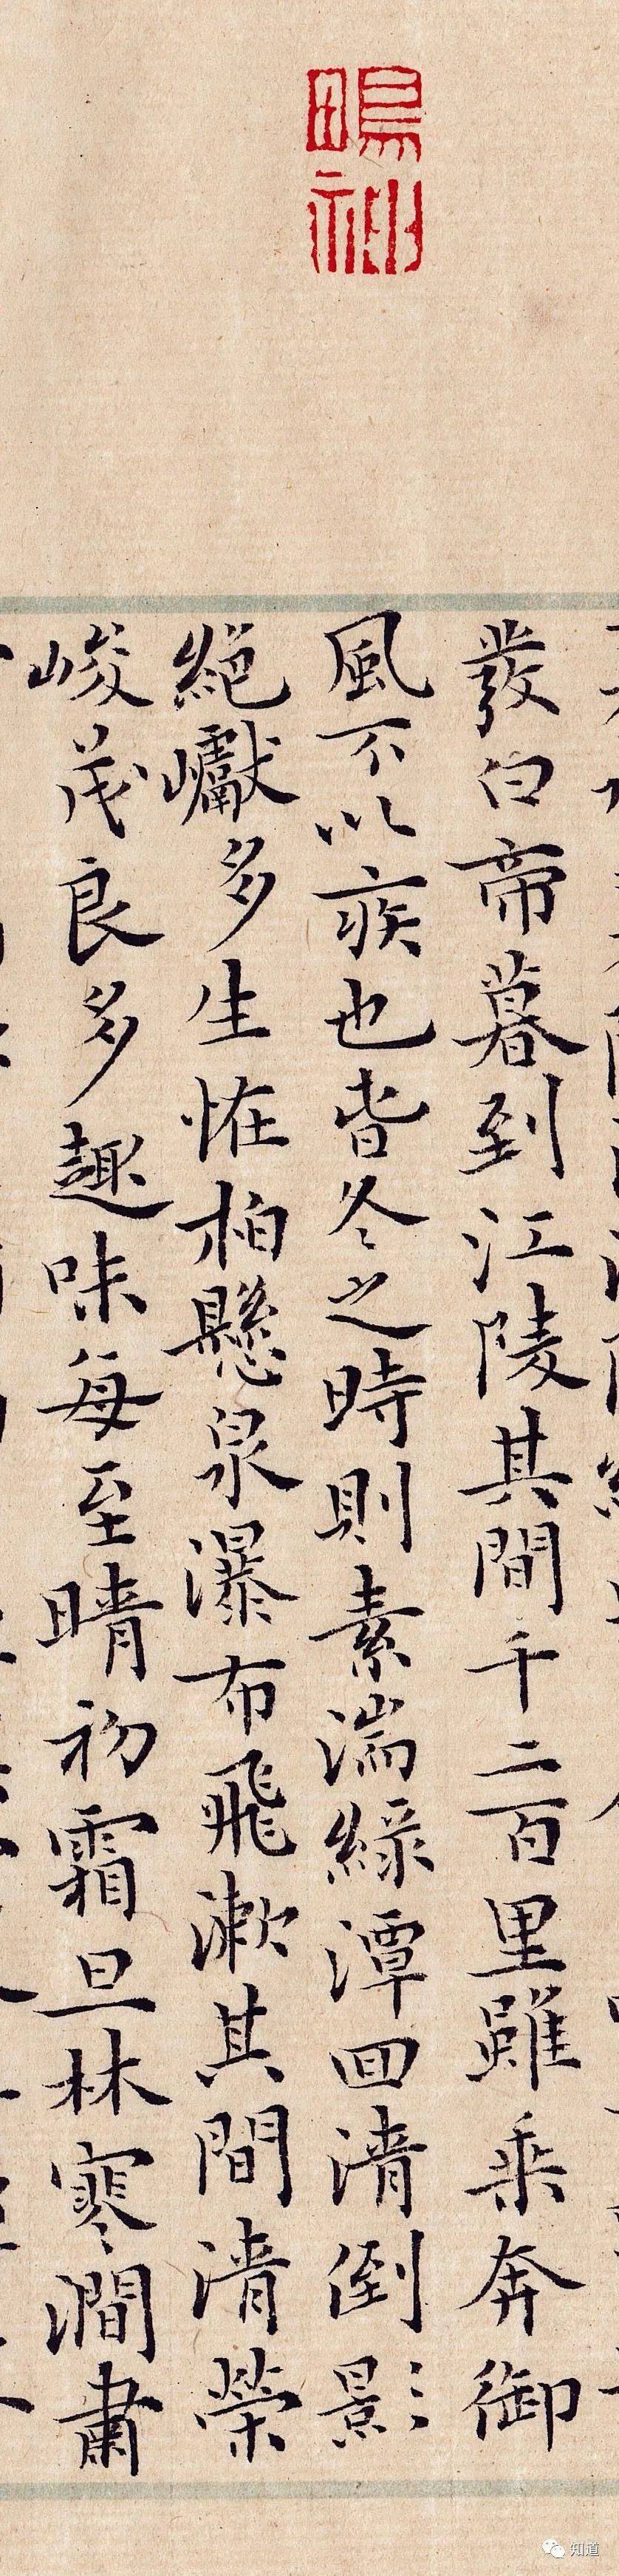 發白帝暮到江陵其間千二百里雖乘奔御
風不以疾也春冬之時則素湍綠潭回清倒影
絕巘多生怪柏懸泉瀑布飛漱其間清榮
峻茂良多趣味每至晴初霜旦林寒澗肅
知道